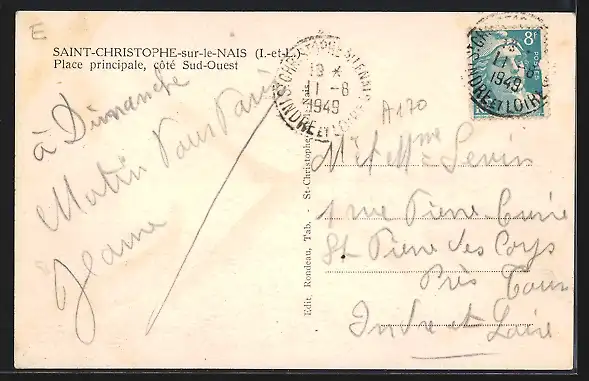 E
SAINT-CHRISTOPHE-sur-le-NAIS (I.-et-L.)
Place principale, côté Sud-Ouest
à Dimanche
Matin Vous
Jeanne
Edit. Rondeau, Tab. - St-Christophe-s.-le-Nais.
ST CHRISTOPHE S LE NAIS
19 *
11-8
1949
INDRE ET LOIRE
8F
POSTES
11-8
1949
INDRE ET LOIRE
A170
Mr et Mme Sevin
1 rue Pierre Curie
St Pierre des Corps
Près Tours
Indre et Loire